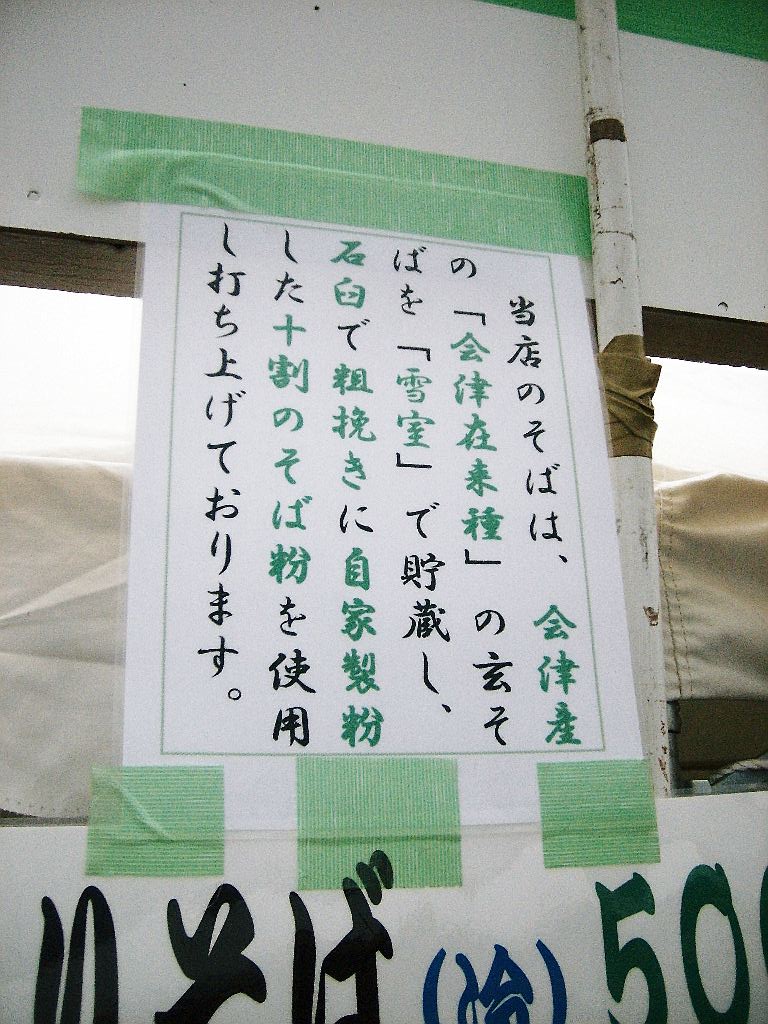 当店のそばは、会津産
の「会津在来種」の玄そ
ばを「雪室」で貯蔵し、
石臼で粗挽きに自家製粉
した十割のそば粉を使用
し打ち上げております。
りそば(冷)500